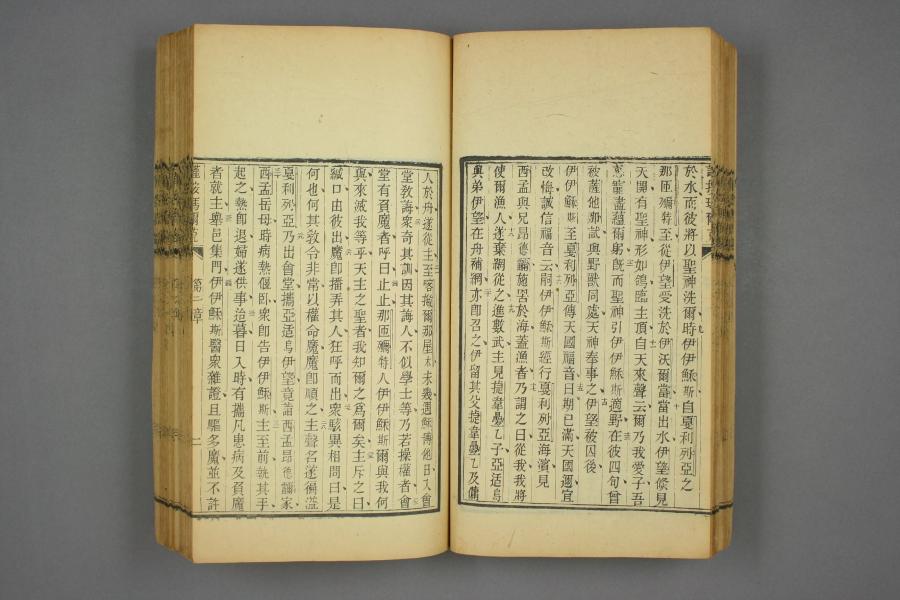 於水而彼將以聖神洗爾時伊伊穌斯自戛利列亞之
那匝彌特至從伊望受洗於伊沃爾當當出水伊望倏見
天開有聖神形如鴿臨主頂自天來聲云爾乃我愛子吾
恩寵盡蘊爾躬旣而聖神引伊伊穌斯適野在彼四旬曾
被薩他那試與野獸同處天神奉事之伊望被囚後
伊伊穌斯至戛利列亞傳天國福音曰期已滿天國邇宜
改悔誠信福音云嗣伊伊穌斯經行戛利列亞海濱見
西孟與兄昂德爾施罟於海蓋漁者乃謂之曰從我我將
使爾漁人遂棄網從之進數武主見捷韋疊乙子亞适烏
與弟伊望在舟補網亦卽召之伊留其父捷韋疊乙及傭
人於舟遂從主至喀撇爾那屋木未幾遇穌博他日入會
堂敎誨衆奇其訓因其誨人不似學士等乃若操權者會
堂有負魔者呼曰止止那匝彌特人伊伊穌斯爾與我何
與來滅我等乎天主之聖者我知爾之爲爾矣主斥之曰
緘口由彼出魔卽播弄其人狂呼而出衆駭異相問曰是
何也何其敎令非常以權命魔魔卽順之主聲名遂徧溢
戛利列亞乃出會堂攜亞适烏伊望竟詣西孟昂德爾家
西孟岳母時病熱偃卧衆卽告伊伊穌斯主至前執其手
起之熱卽退婦遂供事迨暮日入時有攜凡患病及負魔
者就主舉邑集門伊伊穌斯醫衆雜證且驅多魔並不許
第一章
二